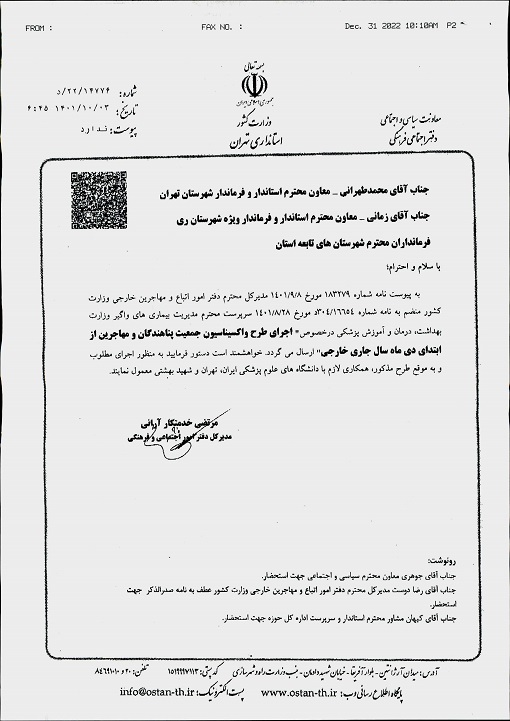 FROM :
FAX NO. :
Dec. 31 2022 10:10AM P2
بسمه تعالی
جمهوری اسلامی ایران
وزارت کشور
استانداری تهران
شماره: ۲۲/۱۴۷۷۴/د
تاریخ: ۱۴۰۱/۱۰/۰۳ ۶:۲۵
پیوست: ندارد
معاونت سیاسی و اجتماعی
دفتر اجتماعی فرهنگی
جناب آقای محمدطهرانی _ معاون محترم استاندار و فرماندار شهرستان تهران
جناب آقای زمانی _ معاون محترم استاندار و فرماندار ویژه شهرستان ری
فرمانداران محترم شهرستان های تابعه استان
با سلام و احترام؛
به پیوست نامه شماره ۱۸۳۲۷۹ مورخ ۱۴۰۱/۹/۸ مدیرکل محترم دفتر امور اتباع و مهاجرین خارجی وزارت
کشور منضم به نامه شماره ۳۰۴/۱۶۶۵۴د مورخ ۱۴۰۱/۸/۲۸ سرپرست محترم مدیریت بیماری های واگیر وزارت
بهداشت، درمان و آموزش پزشکی درخصوص" اجرای طرح واکسیناسیون جمعیت پناهندگان و مهاجرین از
ابتدای دی ماه سال جاری خارجی" ارسال می گردد. خواهشمند است دستور فرمایید به منظور اجرای مطلوب
و به موقع طرح مذکور، همکاری لازم با دانشگاه های علوم پزشکی ایران، تهران و شهید بهشتی معمول نمایند.
مرتضی خدمتکار آرانی
مدیرکل دفتر امور اجتماعی و فرهنگی
رونوشت:
جناب آقای جوهری معاون محترم سیاسی و اجتماعی جهت استحضار.
جناب آقای رضا دوست مدیرکل محترم دفتر امور اتباع و مهاجرین خارجی وزارت کشور عطف به نامه صدرالذکر جهت
استحضار.
جناب آقای کیهان مشاور محترم استاندار و سرپرست اداره کل حوزه جهت استحضار.
آدرس: میدان آرژانتین - بلوار آفریقا - خیابان شهید دادمان - جنب وزارت راه و شهرسازی کد پستی: ۱۵۱۹۹۹۷۱۱۳ تلفن: ۲۰ و ۸۴۶۹۱۰۱۰
پایگاه اطلاع رسانی وب: www.ostan-th.ir پست الکترونیک: info@ostan-th.ir